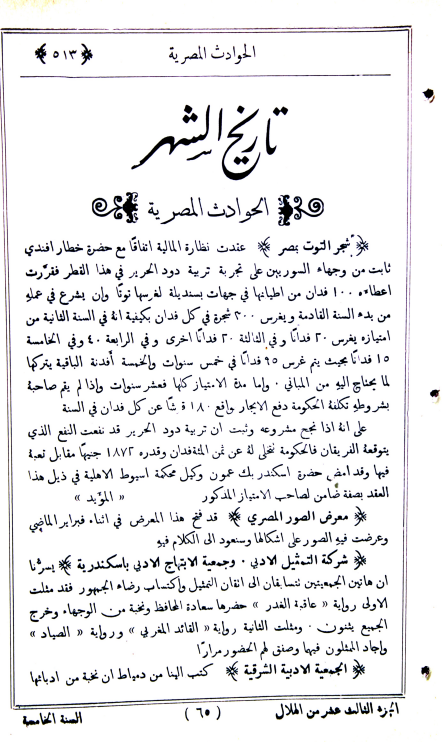 الحوادث المصرية
﴿ ٥١٣ ﴾
تاريخ الشهر
الحوادث المصرية
﴿ شجر التوت بمصر ﴾ عقدت نظارة المالية اتفاقًا مع حضرة خطار افندي
ثابت من وجهاء السوريين على تجربة تربية دود الحرير في هذا القطر فقررت
اعطاءه ١٠٠ فدان من اطيانها في جهات بسنديلة لغرسها توتًا وان يشرع في عمله
من بدء السنة القادمة ويغرس ٢٠٠ شجرة في كل فدان بكيفية انه في السنة الثانية من
امتيازه يغرس ٢٠ فدانًا وفي الثالثة ٢٠ فدانًا اخرى وفي الرابعة ٤٠ وفي الخامسة
١٥ فدانًا بحيث يتم غرس ٩٥ فدانًا في خمس سنوات والخمسة أفدنة الباقية يتركها
لما يحتاج اليه من المباني . واما مدة الامتياز كلها فعشر سنوات واذا لم يقم صاحبه
بشروطه تكلفه الحكومة دفع الايجار واقع ١٨٠ قرشًا عن كل فدان في السنة
على انه اذا نجح مشروعه وثبت ان تربية دود الحرير قد نفعت النفع الذي
يتوقعه الفريقان فالحكومة تتخلى له عن ثمن المئة فدان وقدره ١٨٧٢ جنيهًا مقابل تعبه
فيها وقد امضى حضرة اسكندر بك عمون وكيل محكمة اسيوط الاهلية في ذيل هذا
العقد بصفة ضامن لصاحب الامتياز المذكور « المؤيد »
﴿ معرض الصور المصري ﴾ قد فتح هذا المعرض في اثناء فبراير الماضي
وعرضت فيه الصور على اشكالها وسنعود الى الكلام فيه
﴿ شركة التمثيل الادبي . وجمعية الابتهاج الادبي باسكندرية ﴾ يسرنا
ان هاتين الجمعيتين تتسابقان الى اتقان التمثيل واكتساب رضاء الجمهور فقد مثلت
الاولى رواية « عاقبة الغدر » حضرها سعادة المحافظ ونخبة من الوجهاء وخرج
الجميع يثنون . ومثلت الثانية رواية « القائد المغربي » ورواية « الصياد »
واجاد الممثلون فيها وصفق لهم الحضور مرارًا
﴿ الجمعية الادبية الشرقية ﴾ كتب الينا من دمياط ان نخبة من ادبائها
الجزء الثالث عشر من الهلال
( ٦٥ )
السنة الخامسة